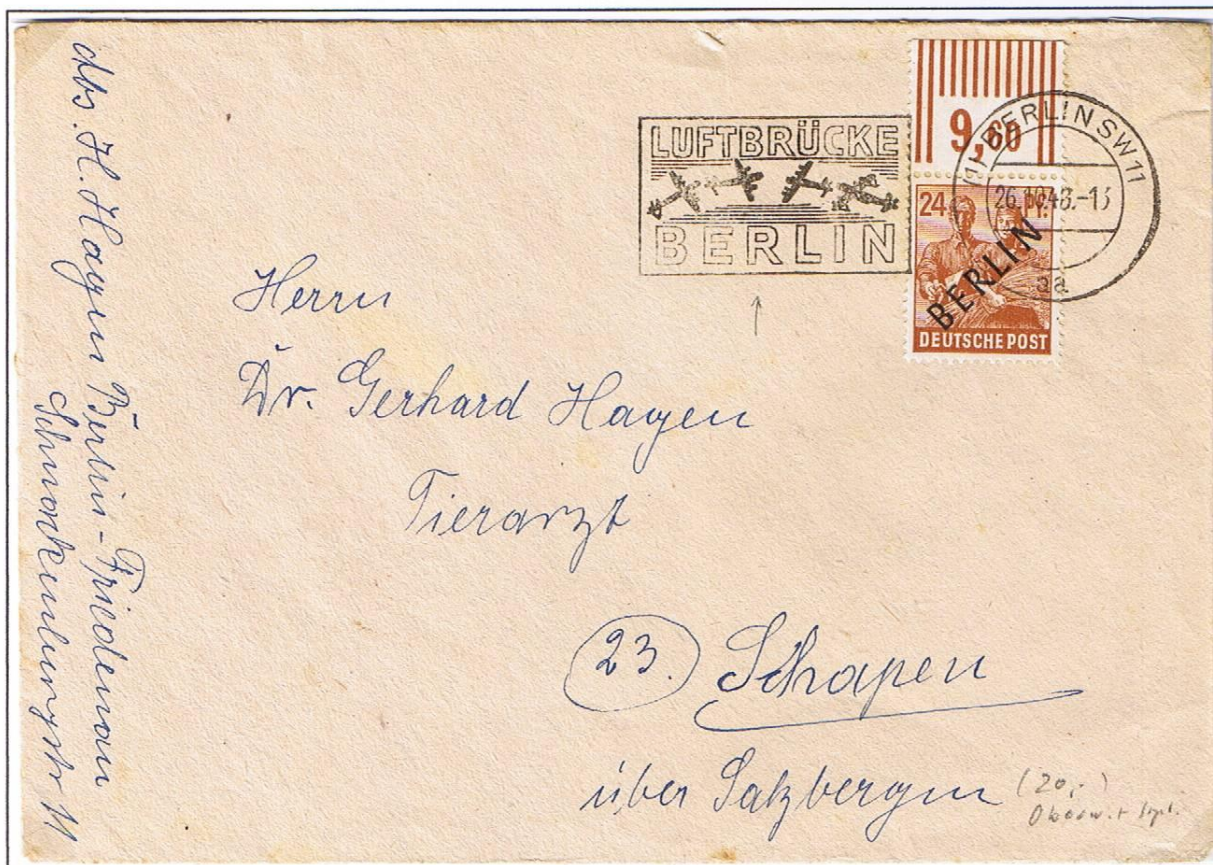 abs. H. Hagen Berlin-Friedenau
11
LUFTBRÜCKE
BERLIN
9,60
BERLIN SW11
24
BERLIN
aa
DEUTSCHE POST
Herrn
Dr. Gerhard Hagen
Tierarzt
23. Schapen
über Salzbergen
(20,-)